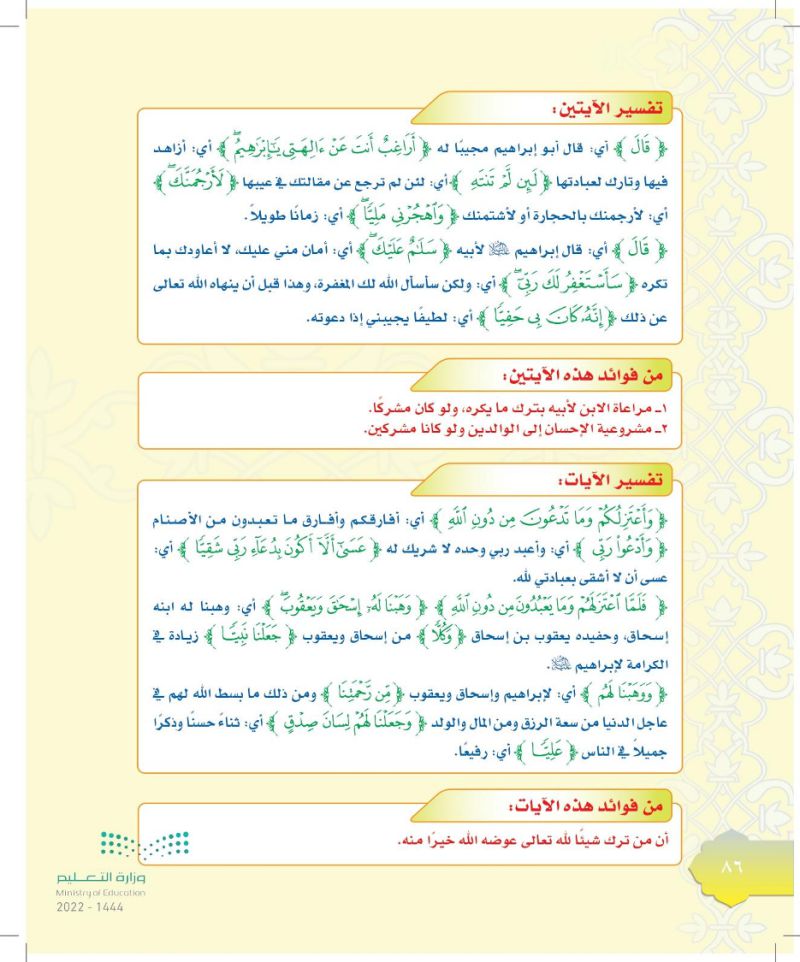 تفسير الآيتين:
﴿ قَالَ ﴾ أي: قال أبو إبراهيم مجيبًا له ﴿ أَرَاغِبٌ أَنتَ عَنْ ءَالِهَتِى يَـٰٓإِبْرَٰهِيمُ ۖ ﴾ أي: أزاهد
فيها وتارك لعبادتها ﴿ لَئِن لَّمْ تَنتَهِ ﴾ أي: لئن لم ترجع عن مقالتك في عيبها ﴿ لَأَرْجُمَنَّكَ ۖ ﴾
أي: لأرجمنك بالحجارة أو لأشتمنك ﴿ وَٱهْجُرْنِى مَلِيًّا ﴾ أي: زمانًا طويلاً.
﴿ قَالَ ﴾ أي: قال إبراهيم ﷺ لأبيه ﴿ سَلَـٰمٌ عَلَيْكَ ۖ ﴾ أي: أمان مني عليك، لا أعاودك بما
تكره ﴿ سَأَسْتَغْفِرُ لَكَ رَبِّىٓ ۖ ﴾ أي: ولكن سأسأل الله لك المغفرة، وهذا قبل أن ينهاه الله تعالى
عن ذلك ﴿ إِنَّهُۥ كَانَ بِى حَفِيًّا ﴾ أي: لطيفًا يجيبني إذا دعوته.
من فوائد هذه الآيتين:
١ـ مراعاة الابن لأبيه بترك ما يكره، ولو كان مشركًا.
٢ـ مشروعية الإحسان إلى الوالدين ولو كانا مشركين.
تفسير الآيات:
﴿ وَأَعْتَزِلُكُمْ وَمَا تَدْعُونَ مِن دُونِ ٱللَّهِ ﴾ أي: أفارقكم وأفارق ما تعبدون من الأصنام
﴿ وَأَدْعُوا۟ رَبِّى ﴾ أي: وأعبد ربي وحده لا شريك له ﴿ عَسَىٰٓ أَلَّآ أَكُونَ بِدُعَآءِ رَبِّى شَقِيًّا ﴾ أي:
عسى أن لا أشقى بعبادتي لله.
﴿ فَلَمَّا ٱعْتَزَلَهُمْ وَمَا يَعْبُدُونَ مِن دُونِ ٱللَّهِ ﴾ ﴿ وَهَبْنَا لَهُۥٓ إِسْحَـٰقَ وَيَعْقُوبَ ۖ ﴾ أي: وهبنا له ابنه
إسحاق، وحفيده يعقوب بن إسحاق ﴿ وَكُلًّا ﴾ من إسحاق ويعقوب ﴿ جَعَلْنَا نَبِيًّا ﴾ زيادة في
الكرامة لإبراهيم ﷺ.
﴿ وَوَهَبْنَا لَهُم ﴾ أي: لإبراهيم وإسحاق ويعقوب ﴿ مِّن رَّحْمَتِنَا ﴾ ومن ذلك ما بسط الله لهم في
عاجل الدنيا من سعة الرزق ومن المال والولد ﴿ وَجَعَلْنَا لَهُمْ لِسَانَ صِدْقٍ ﴾ أي: ثناءً حسنًا وذكرًا
جميلاً في الناس ﴿ عَلِيًّا ﴾ أي: رفيعًا.
من فوائد هذه الآيات:
أن من ترك شيئًا لله تعالى عوضه الله خيرًا منه.
٨٦
وزارة التعـليم
Ministry of Education
2022 - 1444